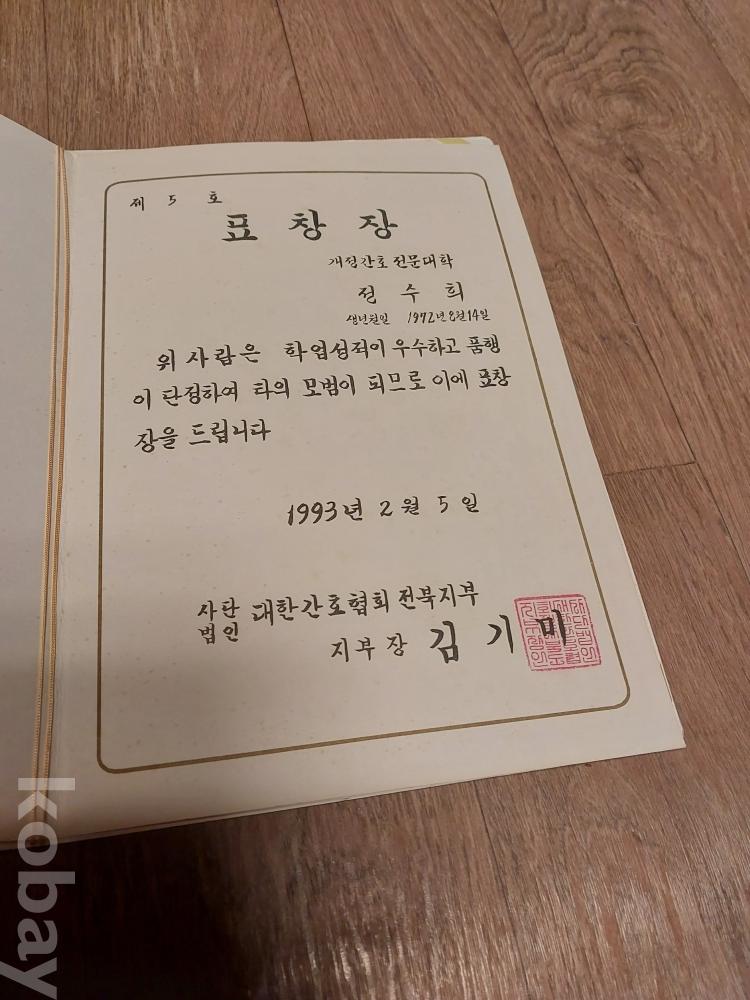 제 5 호
표 창 장
개정간호전문대학
정 수 희
생년월일 1972년 8월 14일
위 사람은 학업성적이 우수하고 품행
이 단정하여 타의 모범이 되므로 이에 표창
장을 드립니다
1993년 2월 5일
사단
법인 대한간호협회 전북지부
지부장 김 기 미
kobay